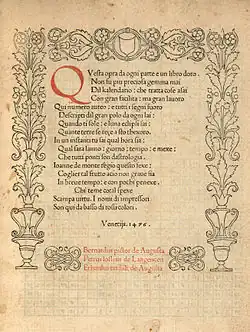 Questa opra da ogni parte e un libro doro.
Non fu piu preciosa gemma mai
Dil kalendario: che tratta cose asai
Con gran facilita: ma gran lauoro
Qui numero aureo: e tutti i segni fuoro
Descripti dil gran polo da ogni lai:
Quando il sole: e luna eclipsi fai:
Quante terre se rece a sto thexoro.
In un instanti tu sai qual hora sia:
Qual sara lanno: giorno: tempo: e mexe:
Che tutti ponti son dastrologia.
Ioanne de monte regio questo fexe:
Coglier tal frutto acio non graue sia
In breue tempo: e con pochi penexe.
Chi teme cotal spexe
Scampa uirtu. I nomi di impressori
Son qui da basso di rossi colori.
Venetijs. 1476.
Bernardus pictor de Augusta
Petrus loslein de Langencen
Erhardus ratdolt de Augusta